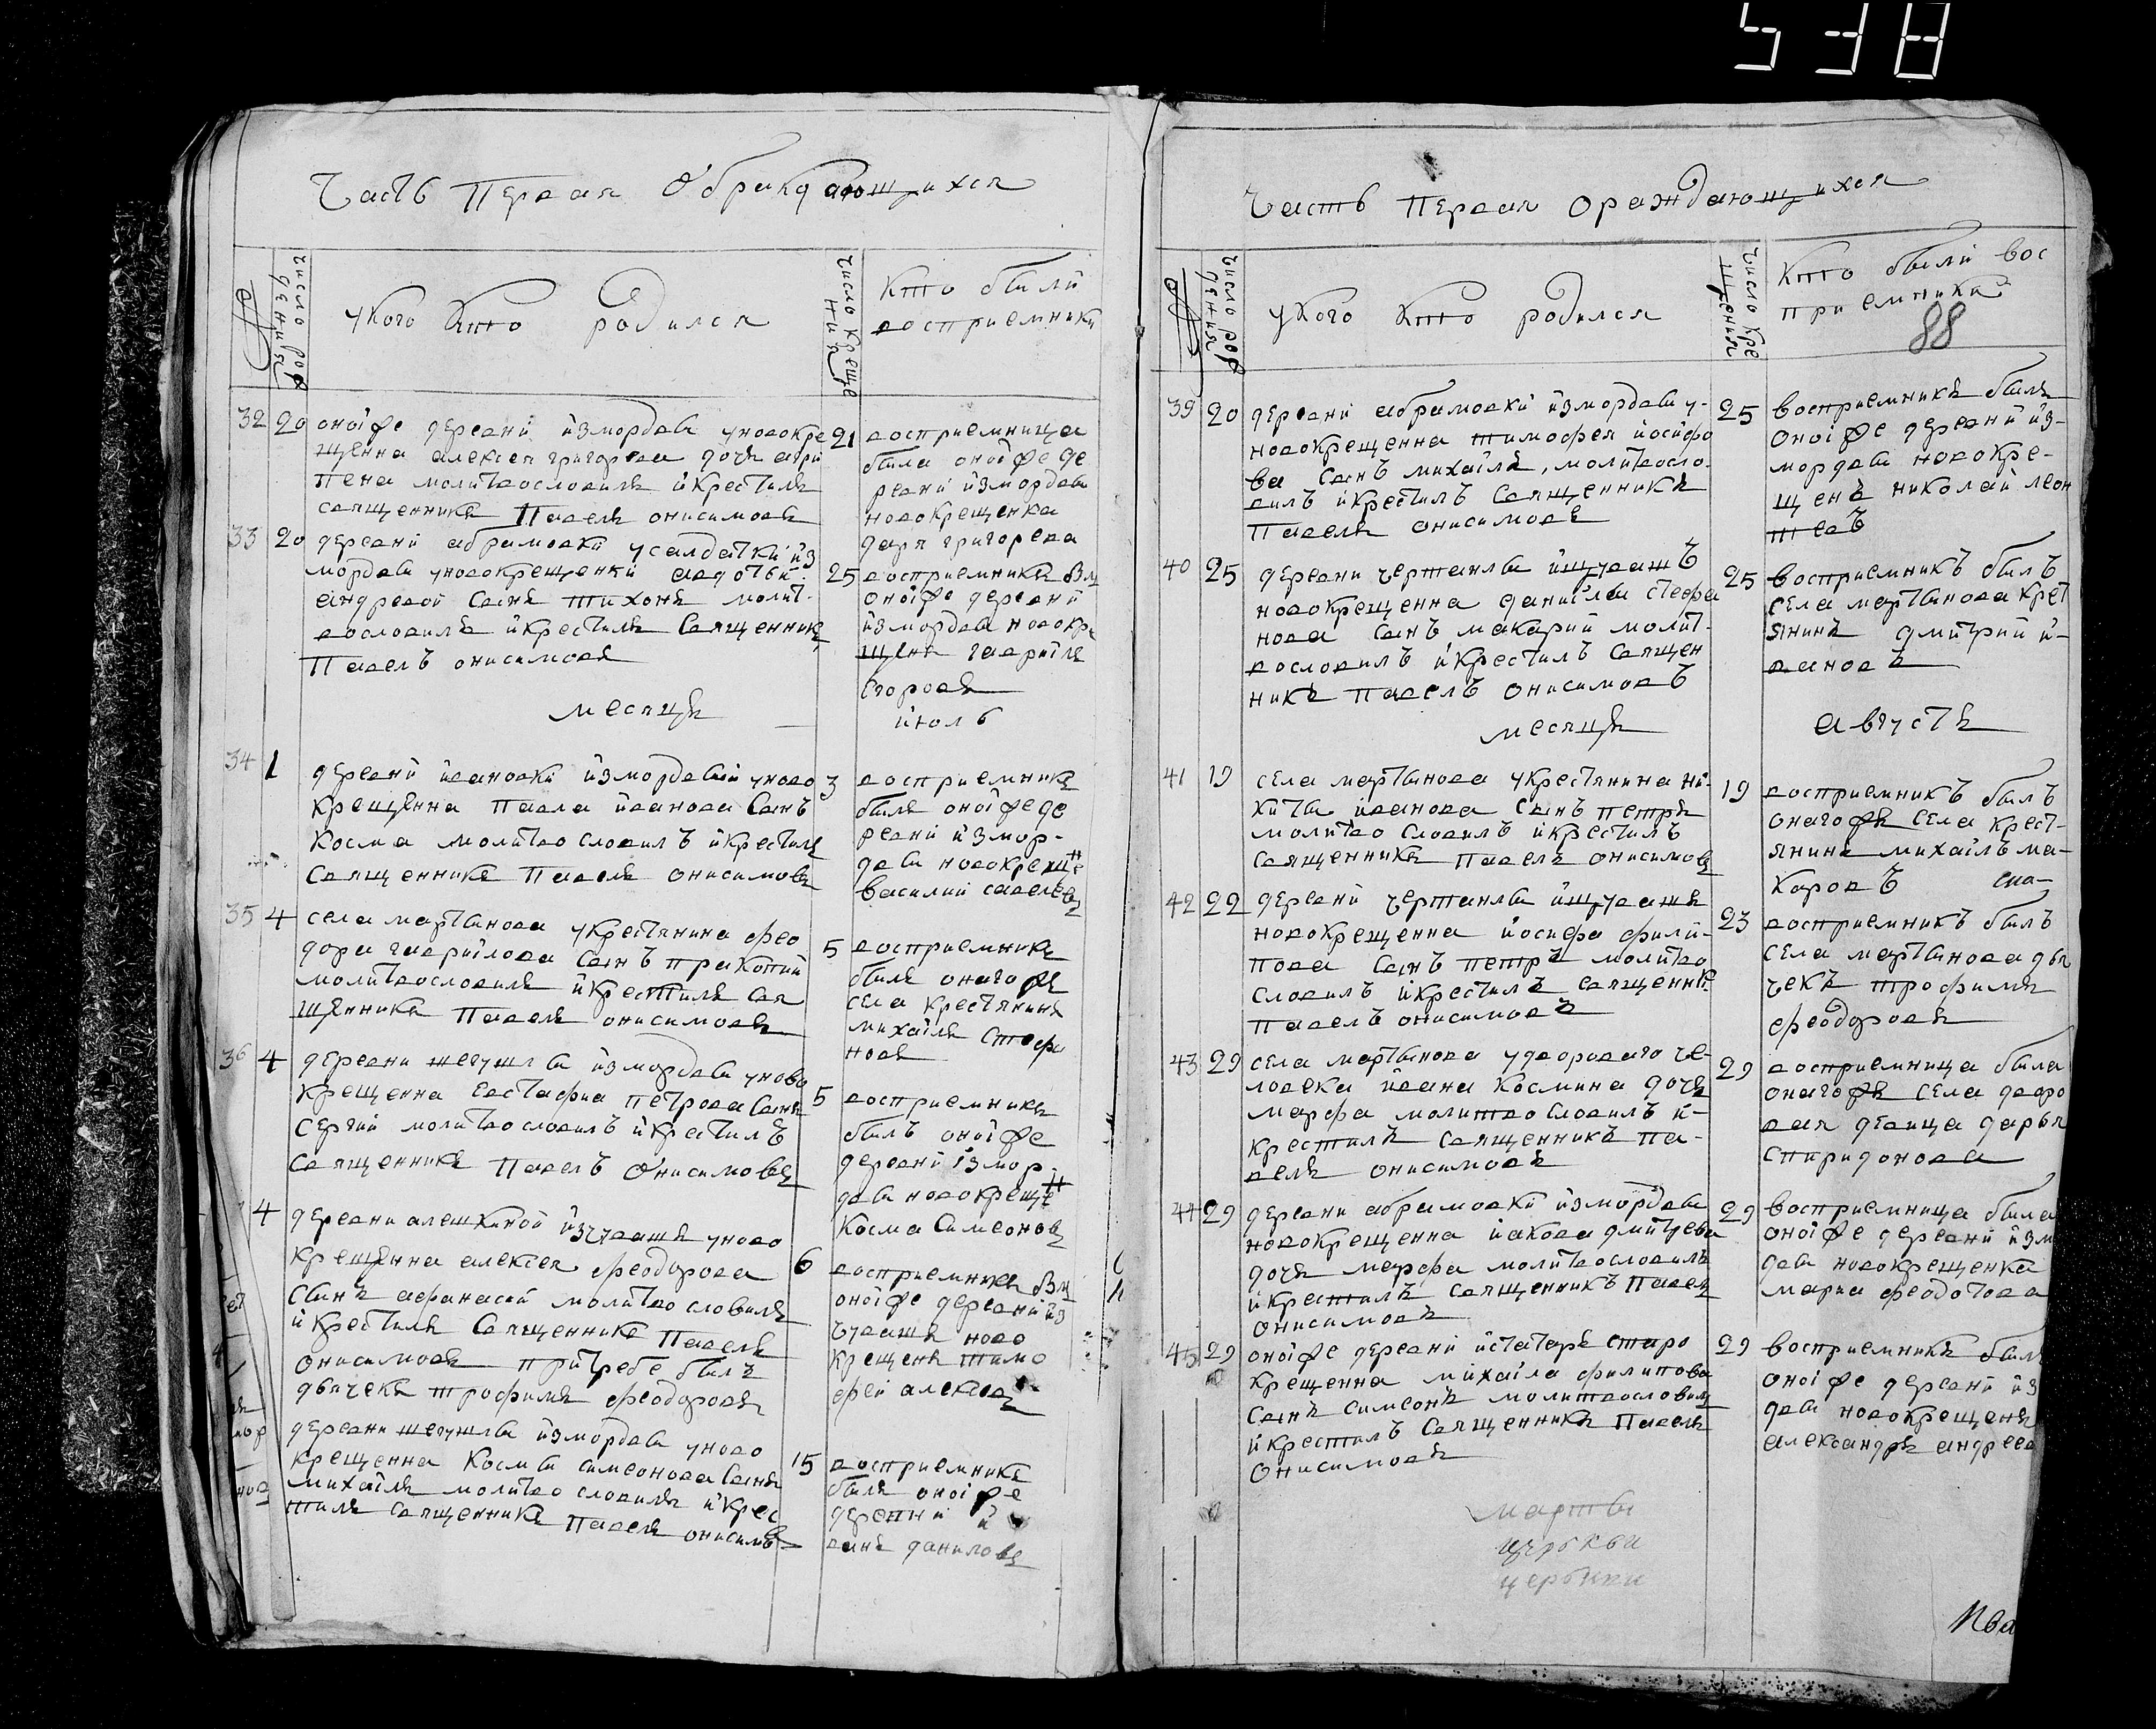 538
Часть Первая Ораждающихся
№
число рож
дения
укого кто родился
число креще
ния
кто были
восприемники
32 20 оной же деревни измордвы уновокре
щенна алексея григорева дочь агри
пена молитвословилъ икрестилъ
священникъ Павелъ онисимовъ
21 восприемница
была оной же де
ревни измордвы
новокрещенка
даря григорева
33 20 деревни абрамовки усалдатки из
мордвы уновокрещенки авдотьи
андреевой сынъ тихонъ молит
вословилъ икрестилъ священникъ
Павелъ онисимовъ
25 восприемникъ былъ
оной же деревни
измордвы новокре
щенъ гавриилъ
Егоровъ
месяцъ июль
34 1 деревни ивановки измордвы уново
крещенна Павла иванова сынъ
косма молитво словилъ икрестилъ
священникъ Павелъ онисимовъ
3 восприемникъ
былъ оной же де
ревни измор-
двы новокрещенъ
василий савельевъ
35 4 села мартынова укрестянина фео
дора гаврилова сынъ пракопий
молитвословилъ икрестилъ свя
щенникъ Павелъ онисимовъ
5 восприемникъ
былъ онагоже
села крестянинъ
михаилъ стефа
новъ
36 4 деревни шегушлы измордвы уново
крещенна евстафиа петрова сынъ
сергий молитвословилъ икрестилъ
священникъ Павелъ онисимовъ
5 восприемникъ
былъ оной же
деревни измор-
двы новокрещенъ
косма симеоновъ
4 деревни алешкиной изчувашъ уново
крещенна алексея феодорова
сынъ афанасий молитво словилъ
икрестилъ священникъ Павелъ
онисимовъ притребе былъ
дьячекъ трофимъ феодоровъ
6 восприемникъ былъ
оной же деревни из
чувашъ ново
крещенъ тимо
фей алексеевъ
деревни шегушлы измордвы уново
крещенна космы симеонова сынъ
михаилъ молитво словилъ икрес
тилъ священникъ Павелъ онисимовъ
15 восприемникъ
былъ оной же
деревни и
ванъ даниловъ
Часть Первая ораждающихся
№
число рож
дения
укого кто родился
число кре
щения
кто были вос
приемники
88
39 20 деревни абрамовки измордвы у-
новокрещенна тимофея иосифо
ва сынъ михаилъ, молитвосло
вилъ икрестилъ священникъ
Павелъ онисимовъ
25 восприемникъ былъ
оной же деревни из-
мордвы новокре-
щенъ николай леон
тевъ
40 25 деревни чертанлы ищувашъ
новокрещенна данилы стефа
нова сынъ макарий молит-
вословилъ икрестилъ священ
никъ Павелъ онисимовъ
25 восприемникъ былъ
села мартынова крест
янинъ дмитрий и-
вановъ
месяцъ августъ
41 19 села мартынова укрестянина ни-
киты иванова сынъ петръ
молитво словилъ икрестилъ
священникъ Павелъ онисимовъ
19 восприемникъ былъ
онагоже села крест-
янинъ михаилъ ма-
каровъ
42 22 деревни чертанлы ищувашъ
новокрещенна иосифа фили-
пова сынъ петръ молитво
словилъ икрестилъ священникъ
Павелъ онисимовъ
23 восприемникъ былъ
села мартынова дья
чекъ трофимъ
феодоровъ
43 29 села мартынова удвороваго че-
ловека ивана космина дочь
марфа молитво словилъ и-
крестилъ священникъ Па-
велъ онисимовъ
29 восприемница была
онагоже села дворо
вая девица дарья
спиридонова
44 29 деревни абрамовки измордвы
новокрещенна иакова дмитрева
дочь марфа молитвословилъ
икрестилъ священникъ Павелъ
онисимовъ
29 восприемница была
оной же деревни изм
двы новокрещенка
мариа феодотова
45 29 оной же деревни истатаръ старо
крещенна михаила филипова
сынъ симеонъ молитвословилъ
икрестилъ священникъ Павелъ
онисимовъ
29 восприемникъ былъ
оной же деревни из
двы новокрещенъ
александръ андреев
марты
церькви
Ива